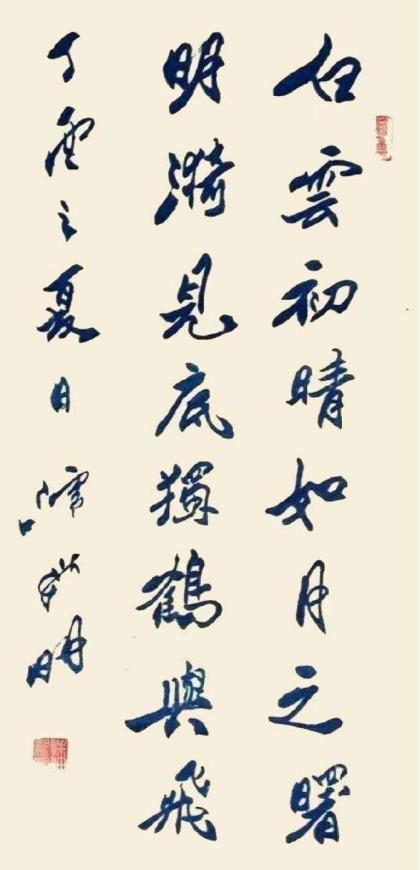 白雲初晴如月之曙
明漪見底獨鶴與飛
丁之夏日明